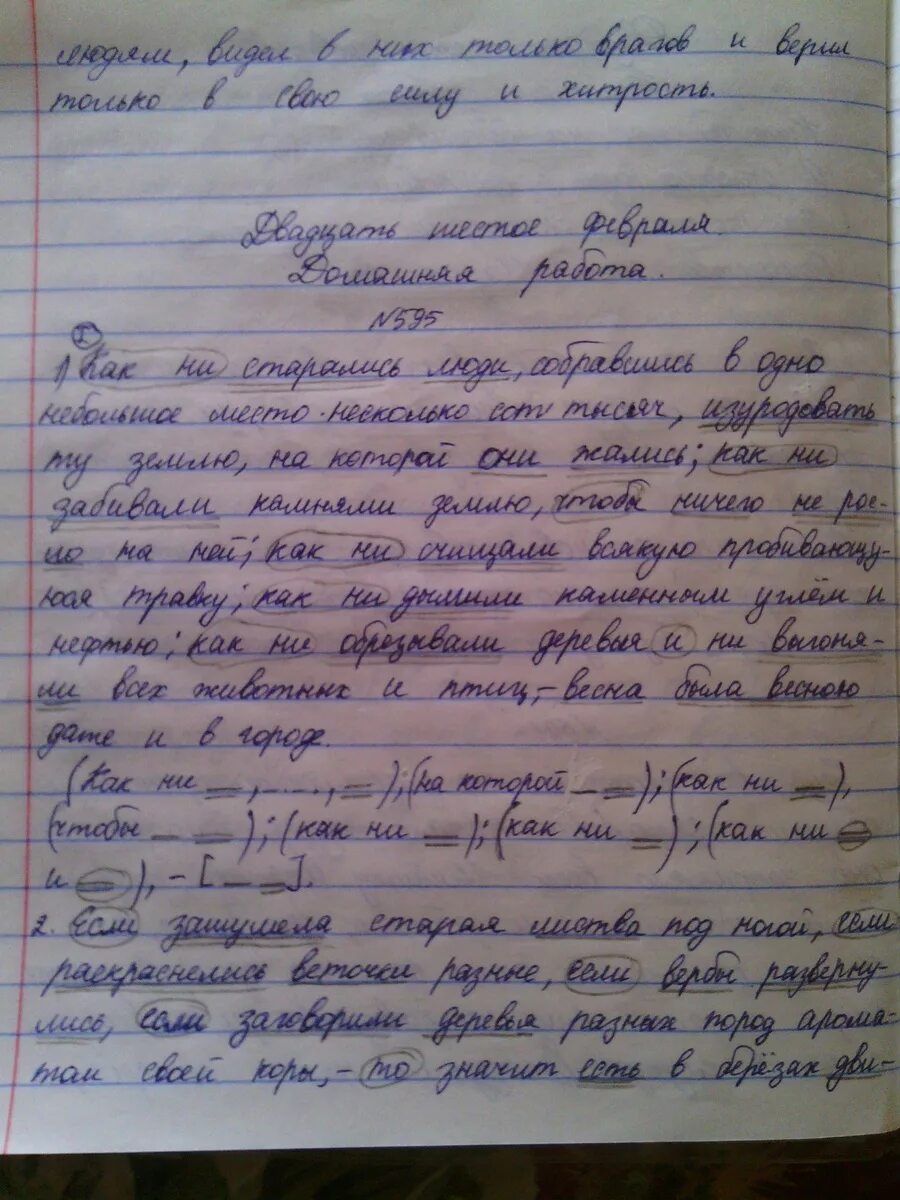 людям, видел в них только врагов и верил
только в свою силу и хитрость.
Двадцать шестое февраля.
Домашняя работа.
№595
I
1) Как ни старались люди, собравшись в одно
небольшое место несколько сот тысяч, изуродовать
ту землю, на которой они жались; как ни
забивали камнями землю, чтобы ничего не рос-
ло на ней; как ни счищали всякую пробивающу-
юся травку; как ни дымили каменным углём и
нефтью; как ни обрезывали деревья и ни выгоня-
ли всех животных и птиц, – весна была весною
даже и в городе.
(Как ни __, ..., __); (на которой _ __); (как ни __),
(чтобы _ __); (как ни __); (как ни __); (как ни __
и __), – [_ __].
2. Если зашумела старая листва под ногой, если
раскраснелись веточки разные, если вербы разверну-
лись, если заговорили деревья разных пород арома-
том своей коры, – то значит есть в берёзах дви-